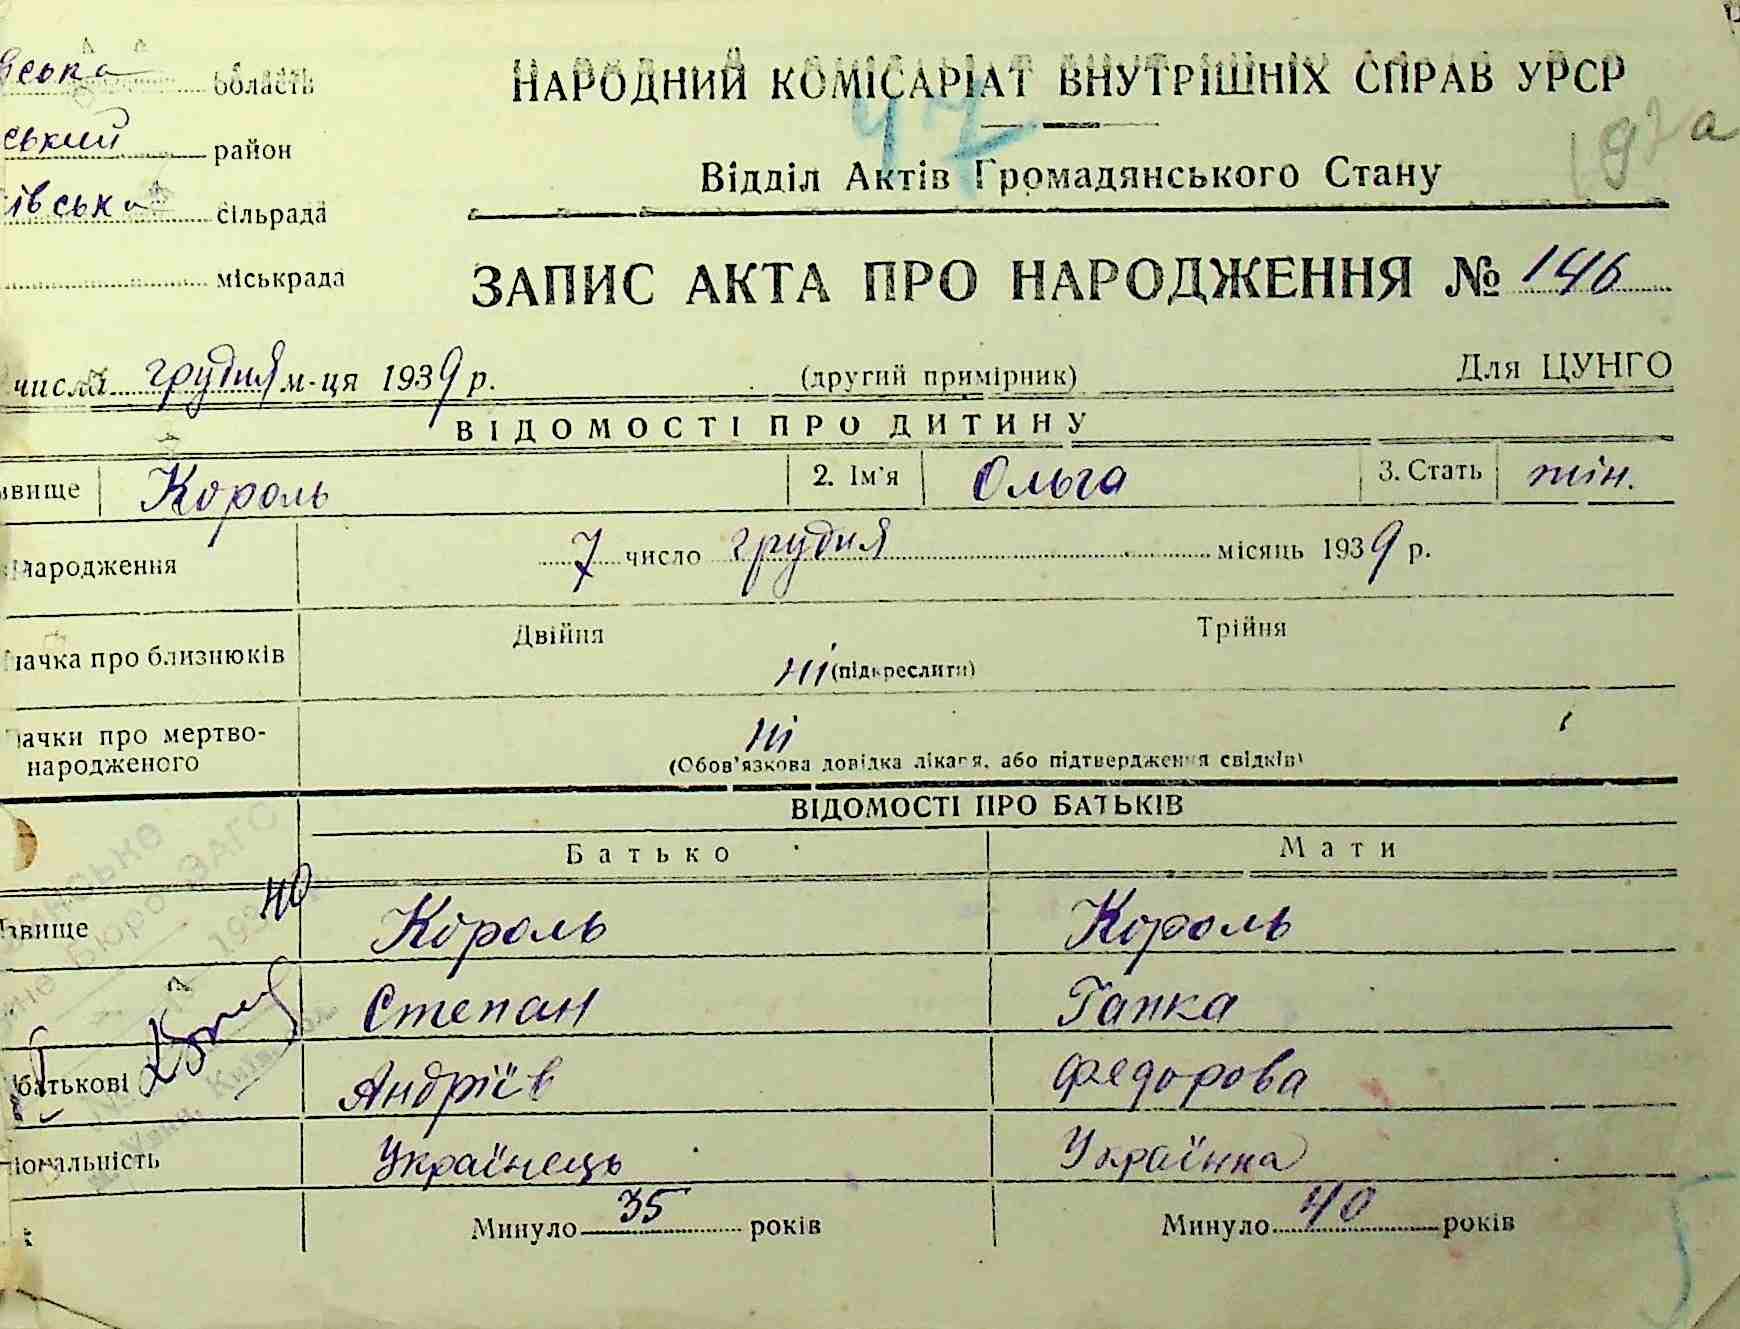 ська область
НАРОДНИЙ КОМІСАРІАТ ВНУТРІШНІХ СПРАВ УРСР
47
ський район
192а
Відділ Актів Громадянського Стану
івська сільрада
міськрада
ЗАПИС АКТА ПРО НАРОДЖЕННЯ № 146
числа грудня м-ця 1939 р. (другий примірник) Для ЦУНГО
ВІДОМОСТІ ПРО ДИТИНУ
звище Король 2. Ім'я Ольга 3. Стать жін.
народження 7 число грудня місяць 1939 р.
Двійня Трійня
начка про близнюків ні (підкреслити)
начки про мертво-
народженого
ні
(Обов'язкова довідка лікаря, або підтвердження свідків)
ВІДОМОСТІ ПРО БАТЬКІВ
Батько Мати
звище Король Король
Степан Гапка
батькові Андріїв Федорова
іональність Українець Українка
Минуло 35 років Минуло 40 років
Бюро ЗАГС
40
193
5